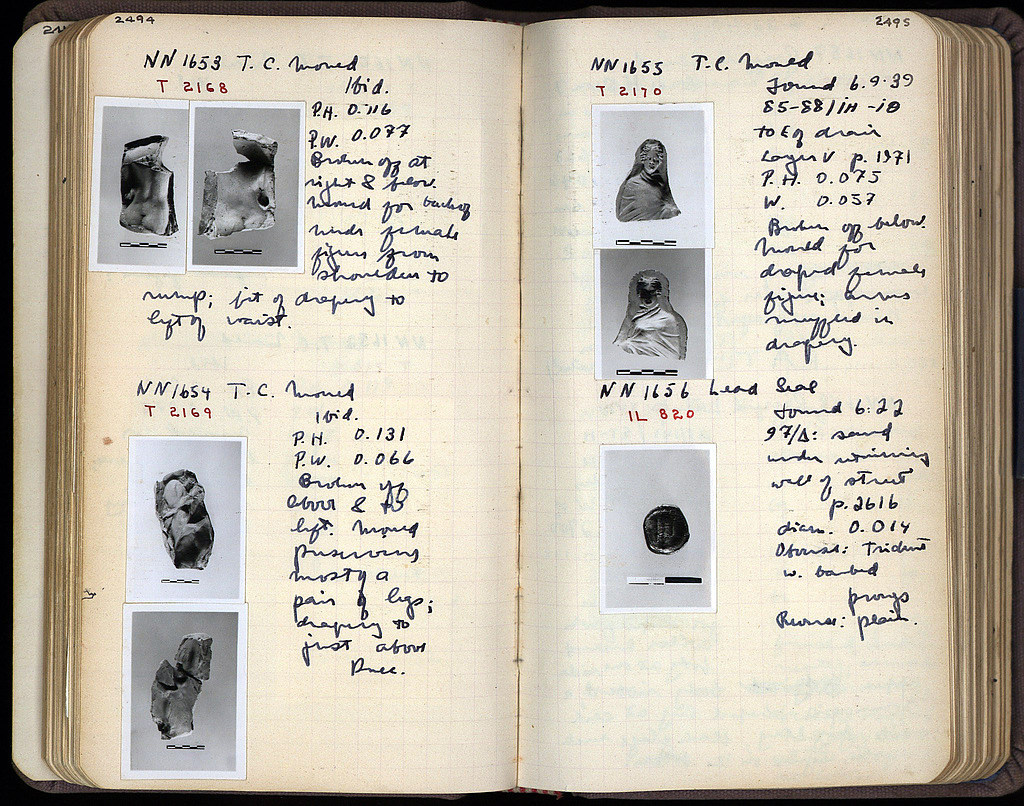 2494
NN 1653 T. C. Mould
T 2168
Ibid.
P.H. 0.116
P.W. 0.077
Broken off at
right & below.
Mould for back of
nude female
figure from
shoulders to
rump; bit of drapery to
left of waist.
NN 1654 T. C. Mould
T 2169
Ibid.
P.H. 0.131
P.W. 0.066
Broken off
above & to
left. Mould
preserving
most of a
pair of legs;
drapery to
just above
knee.
2495
NN 1655 T.C. Mould
T 2170
Found 6.9.39
85-88/ΙΗ -ΙΘ
to E of drain
Layer V p. 1971
P.H. 0.075
W. 0.057
Broken off below.
Mould for
draped female
figure; arms
muffled in
drapery.
NN 1656 Lead Seal
IL 820
Found 6.22
97/Δ: sand
under retaining
wall of street
p. 2616
diam. 0.014
Obverse: Trident
w. barbed
prongs
Reverse: plain.